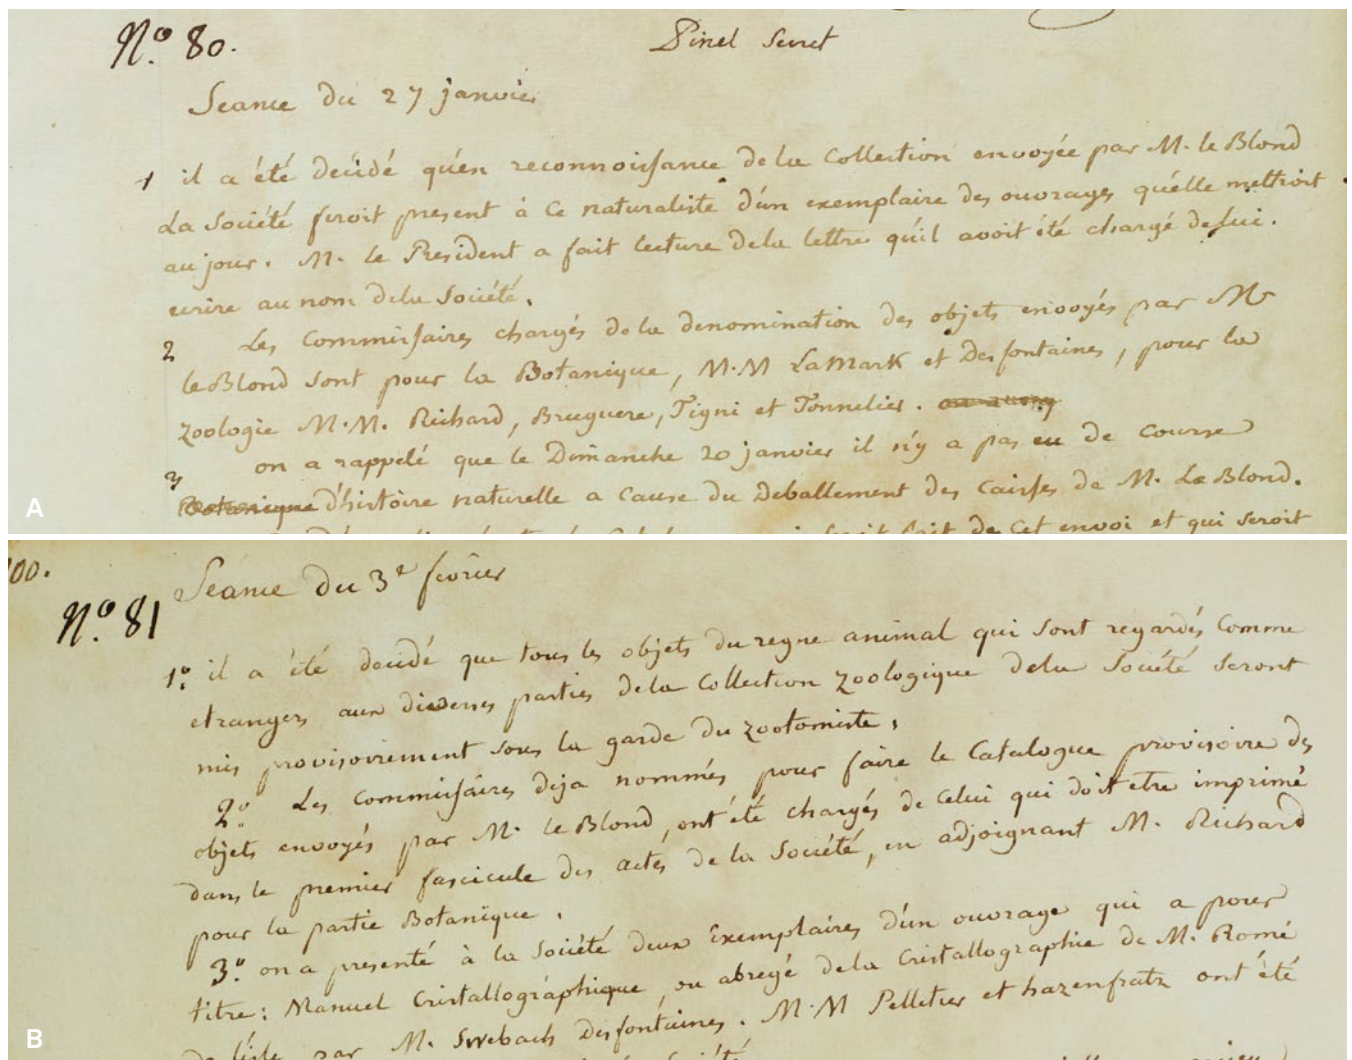 Nº. 80.
Pinel Secret
Seance du 27 janvier
1 il a été décidé qu'en reconnoissance de la Collection envoyée par M. le Blond
La Société feroit present à Ce naturaliste d'un exemplaire des ouvrages qu'elle mettroit
au jour. M. le President a fait lecture de la lettre qu'il avoit été chargé de lui.
ecrire au nom de la Société.
2 Les Commissaires chargés de la denomination des objets envoyés par Mr
le Blond sont pour la Botanique, M.M LaMark et Desfontaines, pour la
zoologie M.M. Richard, Bruguere, Tigni et Tonnelier.
3 on a rappelé que le Dimanche 20 janvier il n'y a pas eu de Course
Botanique d'histoire naturelle a Cause du Deballement des Caisses de M. Le Blond.
de Cet envoi et qui seroit
A
100.
Seance du 3e fevrier
Nº. 81
1º. il a été decidé que tous les objets du regne animal qui sont regardés Comme
etrangers aux diverses parties de la Collection zoologique de la Société seront
mis provisoirement sous la garde du zootomiste.
2º. Les Commissaires deja nommés pour faire le Catalogue provisoire des
objets envoyés par M. le Blond, ont été chargés de Celui qui doit etre imprimé
dans le premier fascicule des actes de la Société, en adjoignant M. Richard
pour la partie Botanique.
3º. on a presenté à la Société deux Exemplaires d'un ouvrage qui a pour
titre: Manuel Cristallographique, ou abregé de la Cristallographie de M. Romé
de lisle par M. Swebach Desfontaines. M.M Pelletier et hazenfratz ont été
Société
B